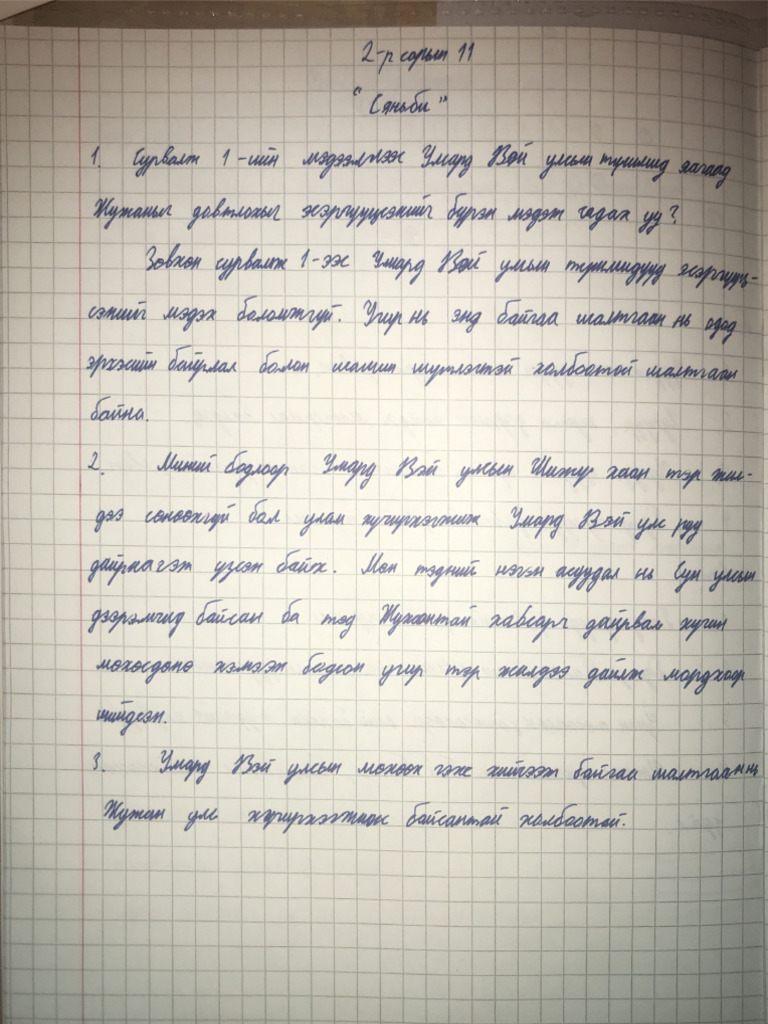 2-р сарын 11
"Сяньби"
1. Сурвалж 1-ийн мэдээлэлээс Умард Вэй улсын түшмэлд яагаад
Жужаныг довтлохыг эсэргүүцсэнийг бүрэн мэдэж чадах уу?
Зөвхөн сурвалж 1-ээс Умард Вэй улсын түшмэлүүд эсэргүүц-
сэнийг мэдэх боломжгүй. Учир нь энд байгаа шалтгаан нь одод
эрхэсийн байрлал болон шашин шүтлэгтэй холбоотой шалтгаан
байна.
2. Миний бодлоор Умард Вэй улсын Шижу хаан тэр жил-
дээ сөнөөхгүй бол улам хүчирхэгжиж Умард Вэй улс руу
дайрна гэж үзсэн байх. Мөн тэдний нэгэн асуудал нь Сүн улсын
дээрэмчид байсан ба тэд Жужантай хавсарч дайрвал хүчин
мөхөсдөнө хэмээж бодсон учир тэр жилдээ дайлж мордохоор
шийдсэн.
3. Умард Вэй улсын мөхөөх гэж хийгээж байгаа шалтгаан нь
Жужан улс хүчирхэгжиж байсантай холбоотой.